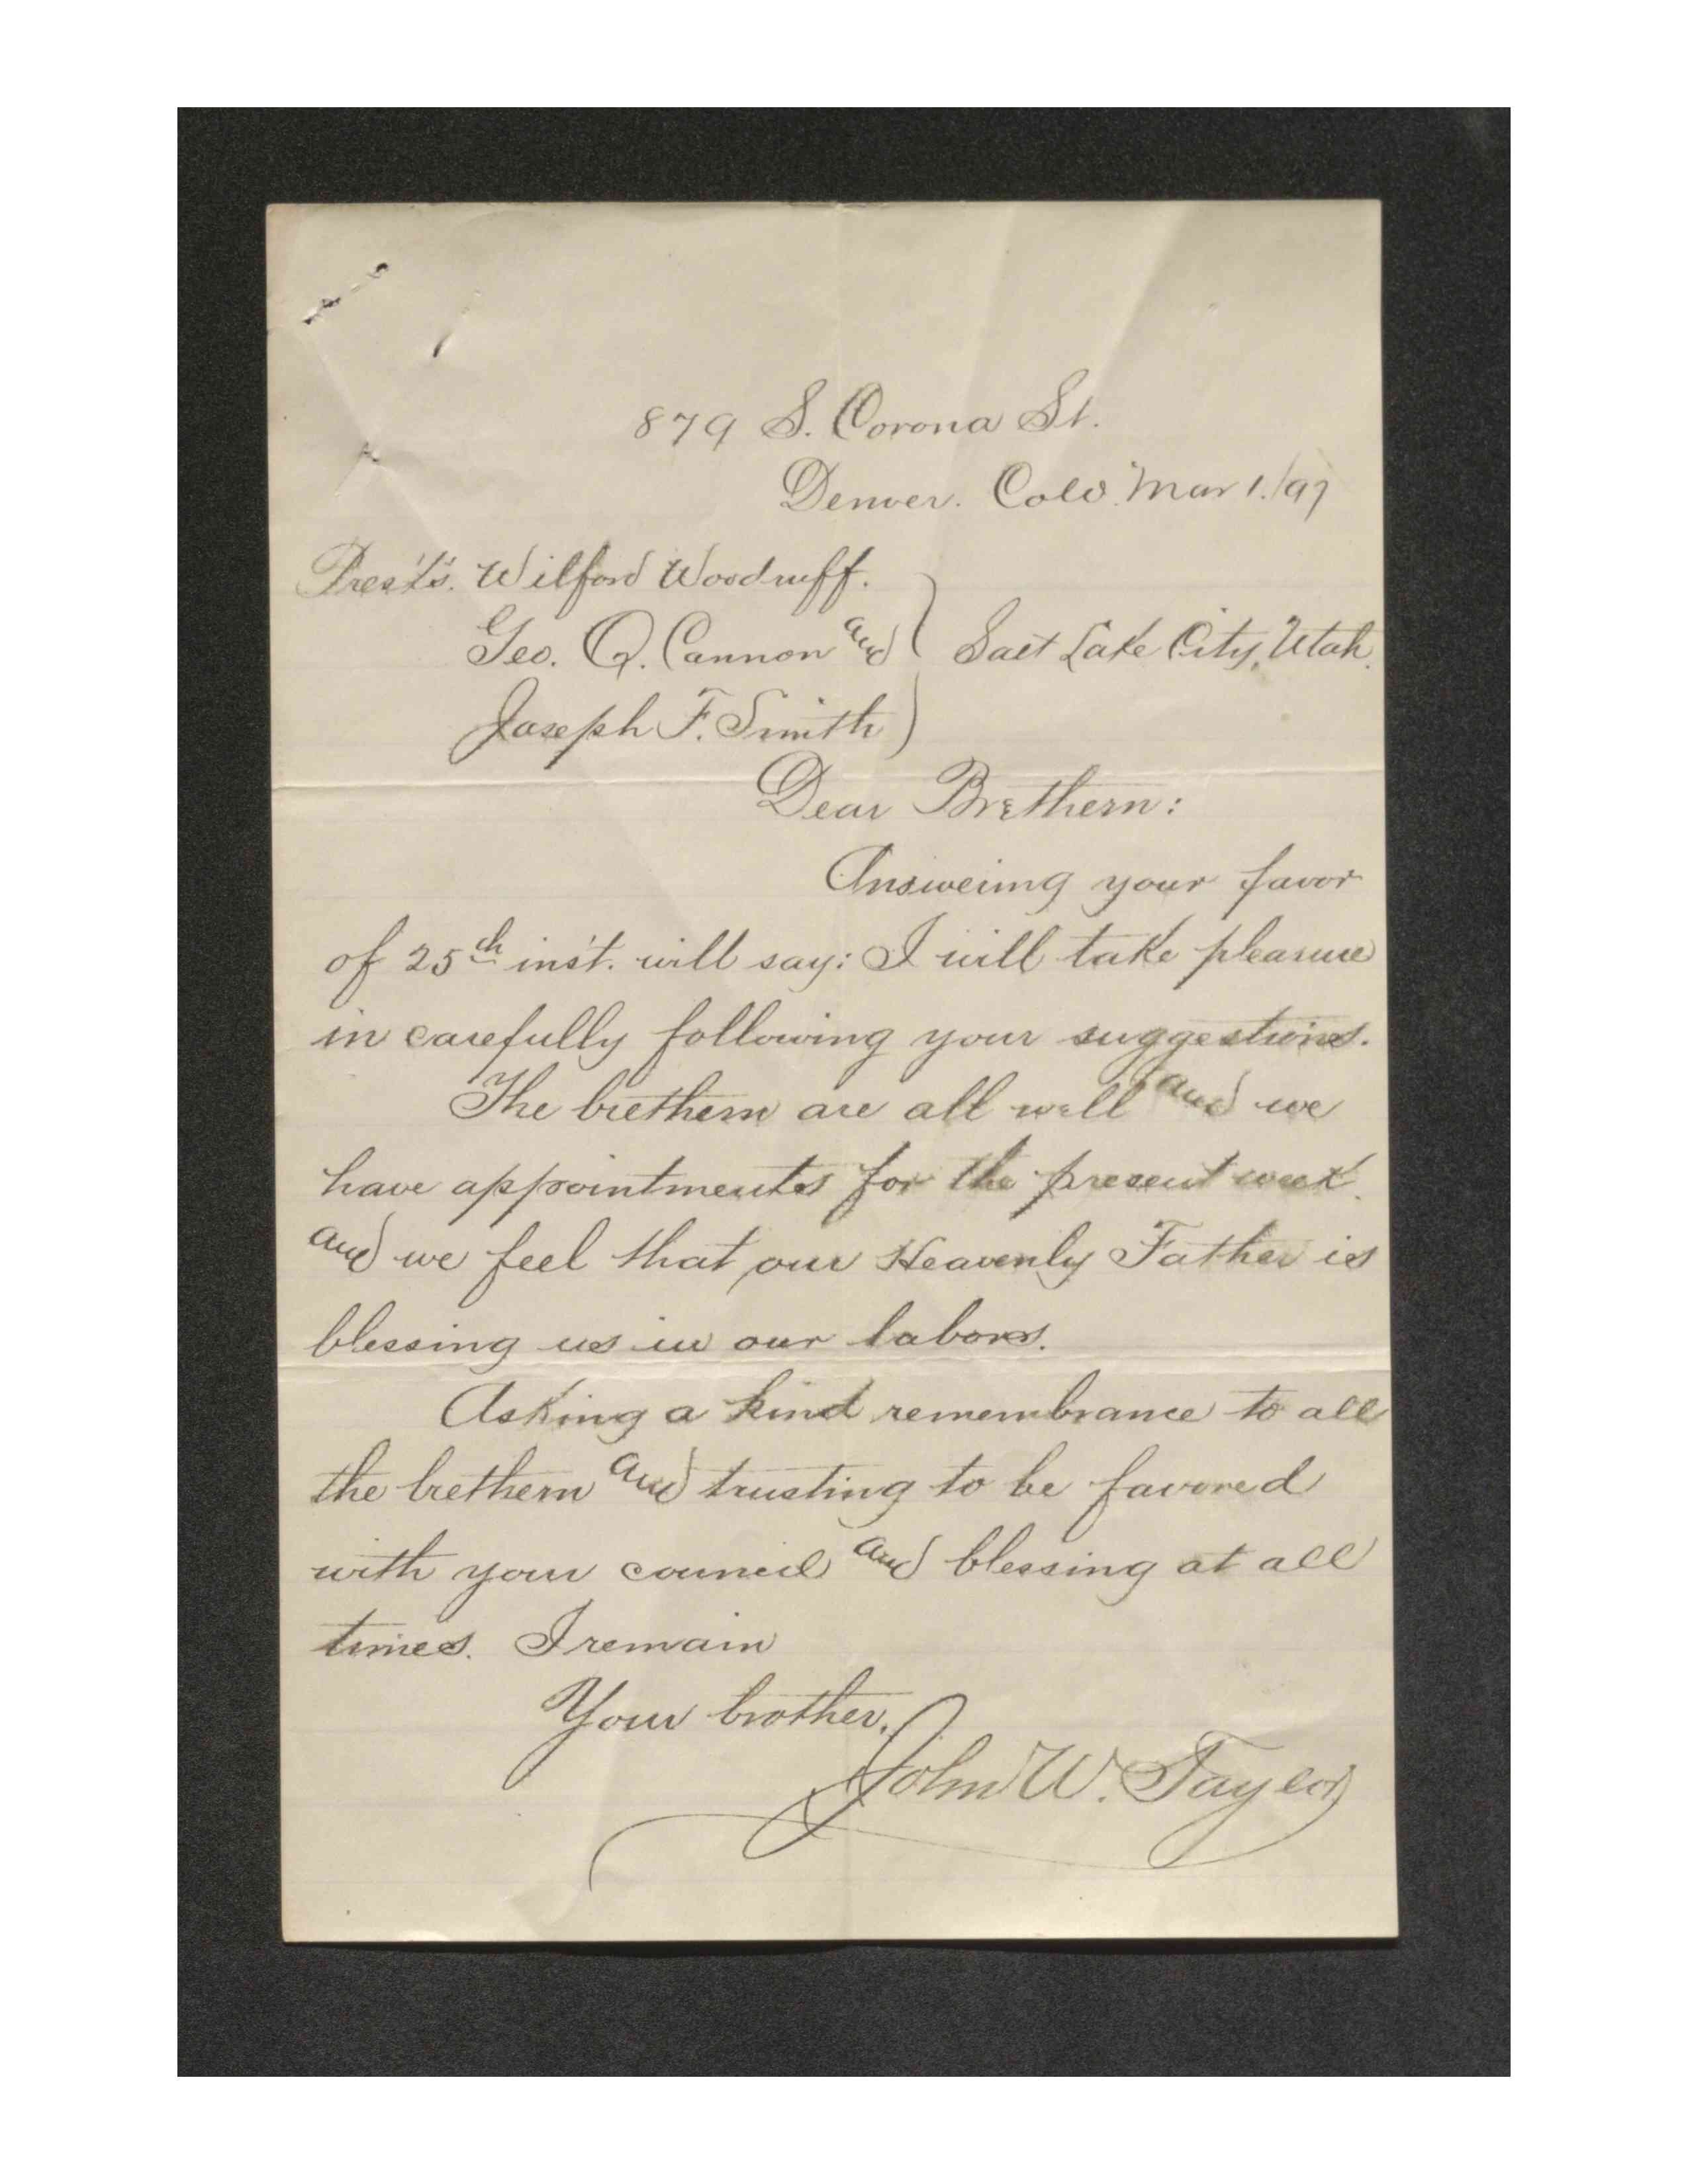 879 S. Corona St.
Denver. Colo. Mar 1./97
Pres'ts. Wilford Woodruff.
Geo. Q. Cannon and } Salt Lake City, Utah.
Joseph F. Smith
Dear Brethern:
Answering your favor
of 25th inst. will say: I will take pleasure
in carefully following your suggestions.
The brethern are all well and we
have appointments for the present week.
and we feel that our Heavenly Father is
blessing us in our labors.
Asking a kind remembrance to all
the brethern and trusting to be favored
with your council and blessing at all
times. I remain
Your brother,
John W. Taylor